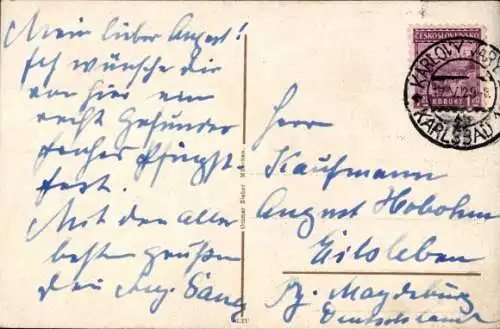 Mein lieber August!
Ich wünsche Dir
von hier ein
recht gesundes
frohes Pfingst-
fest.
Mit den aller
besten Grüßen
Dein Aug.
Ottmar Zieher München
ČESKOSLOVENSKO
KORUNY
KARLOVY VARY
KARLSBAD 1
Herrn
Kaufmann
August Hobohm
Eilsleben
Bz. Magdeburg
Deutschland